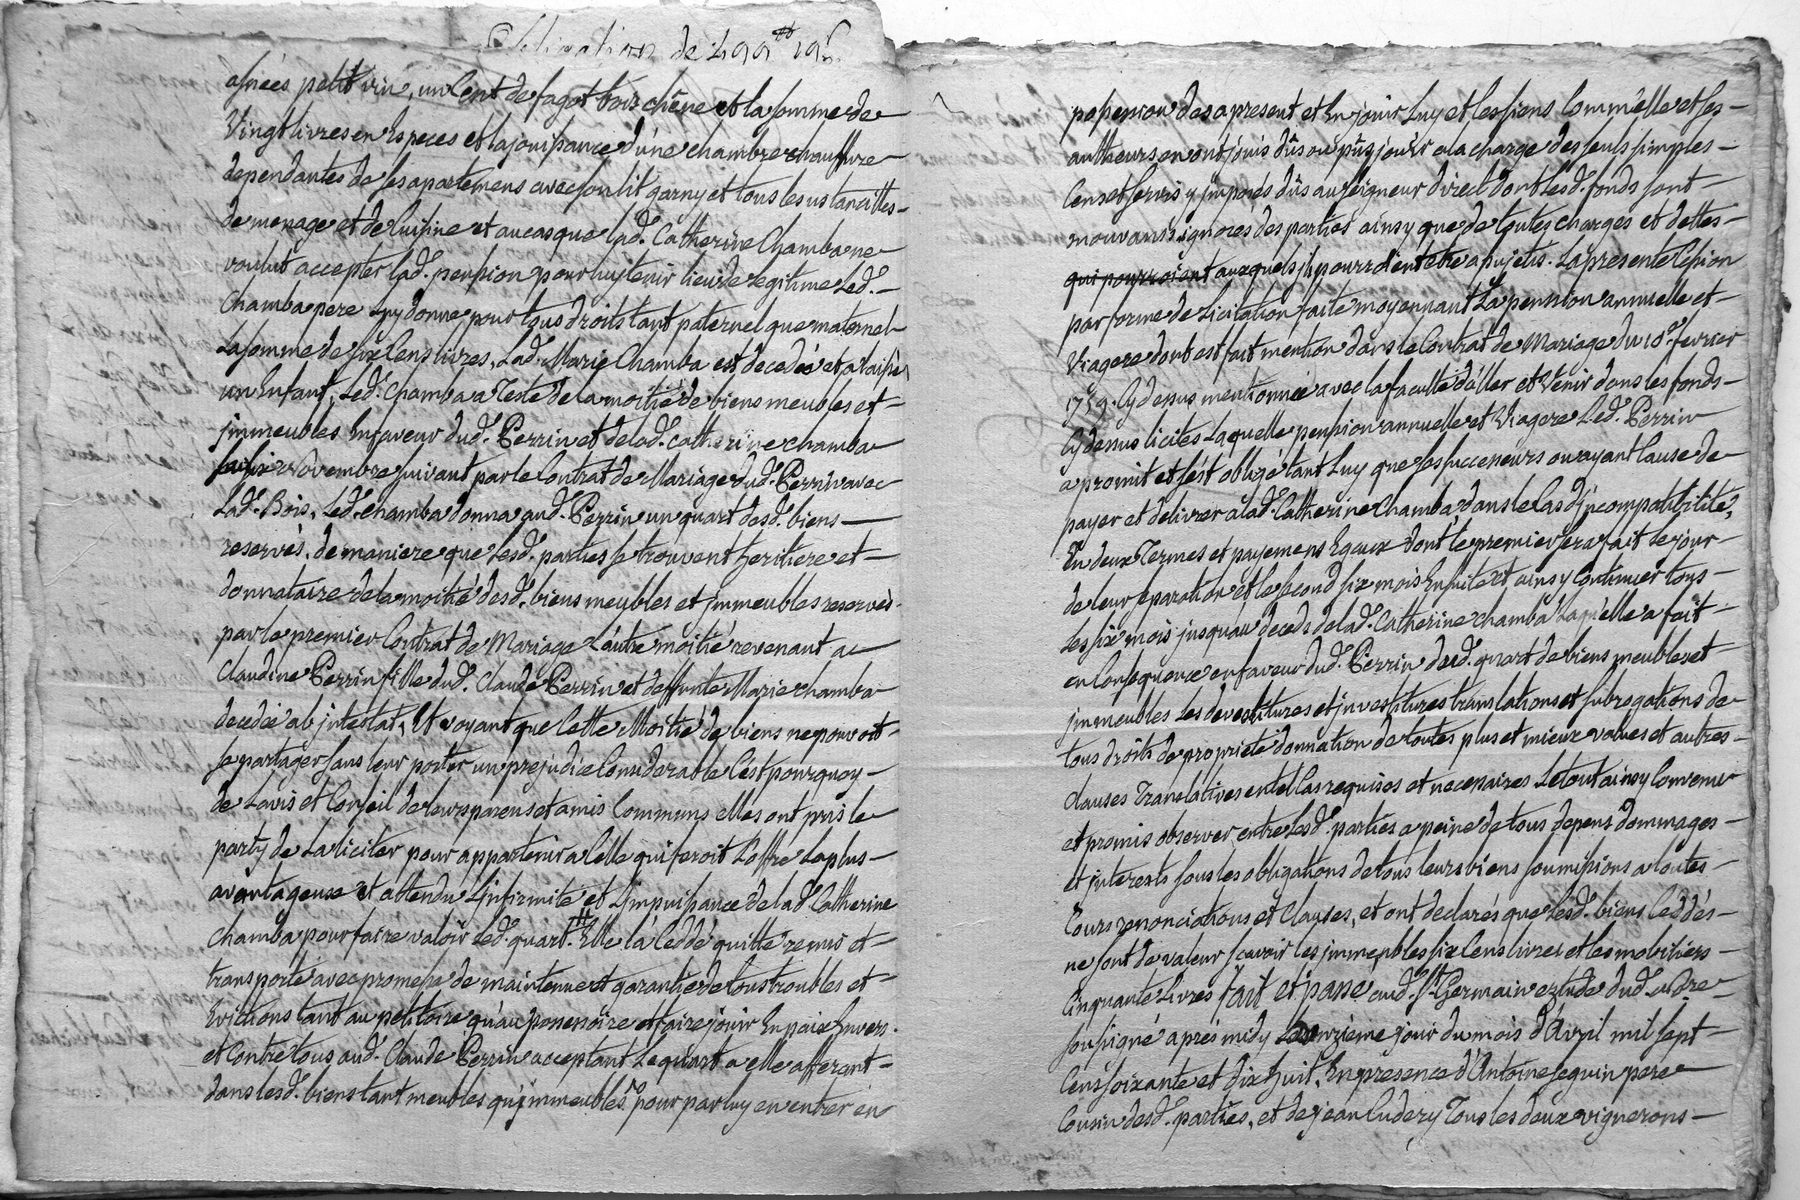 de 499tt 19s
asnées petit vin, un Cent de fagot bois chêne et la somme de
Vingt livres en especes et la jouissance d'une chambre chauffure
dependantes de ses apartemens avec son lit garny et tous les ustancilles
de menage et de Cuisine et au cas que lad. Catherine Chamba ne
voulut accepter lad. penssion pour luy tenir lieu de legitime Led.
Chamba pere luy donne pour tous droits tant paternel que maternel
La somme de six Cens livres, Lad. Marie Chamba est decedée et a laissé
un Enfant, Led. Chamba a Testé de la moitié de biens meubles et
jmmeubles En faveur dud. Perrin et de lad. Catherine chamba
novembre suivant par le Contrat de Mariage dud. Perrin avec
Lad. Bois, Led. chamba donna aud. Perrin un quart desd. biens
reservés, de maniere que Lesd. parties se trouvent heritiere et
donnataire de la moitié desd. biens meubles et jmmeubles reservés
par le premier Contrat de Mariage L'autre moitié revenant a
Claudine Perrin fille dud. Claude Perrin et deffunte Marie chamba
decedée ab jntestat, Et voyant que Cette Moitié de biens ne pouvoit
se partager sans leur porter un prejudice Considerable C'est pourquoy
de Lavis et Conseil de leurs parens et amis Communs elles ont pris le
party de La liciter pour appartenir a Celle qui feroit L'offre La plus
avantageuse et attendu L'jnfirmité et L'jmpuissance de lad. Catherine
Chamba pour faire valoir Led. quart. Elle l'a Ceddé quitté remis et
transporté avec promesse de maintenue et garantie de tous troubles et
Evictions tant au petitoire qu'au possessoire et faire jouir En paix Envers
et Contre tous aud. Claude Perrin acceptant Le quart a elle afferant
dans lesd. biens tant meubles qu'jmmeubles pour par luy en entrer en
possession des a present et En jouir Luy et les siens Comm'elle et ses
autheurs en ont jouis dûs ou pûs jouir a la charge des seuls simples
Cens et servis y jmposés dûs au seigneur direct dont lesd. fonds sont
mouvants ignorés des parties ainsy que de toutes charges et dettes
qui pourroient auxquels jls pourroient etre assujetis. La presente Cession
par forme de Licitation faite moyennant La penssion annuelle et
Viagere dont est fait mention dans le Contrat de Mariage du 10e fevrier
1759. Cy dessus mentionnée avec la faculté d'aller et Venir dans les fonds
Cy dessus licités Laquelle penssion annuelle et Viagere Led. Perrin
a promit et s'est obligé tant Luy que ses successeurs ou ayant Cause de
payer et delivrer a lad. Catherine Chamba dans le Cas d'jncompatibilité,
En deux Termes et payemens Egaux dont le premier sera fait Le jour
de leur separation et le second six mois Ensuite et ainsy Continuer tous
Les six mois jusqu'au deceds de lad. Catherine chamba Laquelle a fait
en Consequence en faveur dud. Perrin dud. quart de biens meubles et
jmmeubles Les devestitures et jnvestitures translations et subrogations de
tous droits de proprieté donnation de toutes plus et mieux values et autres
Clauses Translatives en tel Cas requises et necessaires Le tout ainsy Convenu
et promis observer entre Lesd. parties a peine de tous depens dommages
et jnterests sous les obligations de tous leurs biens soumissions a toutes
Cours renonciations et Clauses, et ont declarés que Lesd. biens Ceddés
ne sont de valeur scavoir les jmmeubles six Cens livres et les mobiliers
Cinquante Livres fait et passé aud. St Germain etude dud. no.re
soussigné aprés midy jour du mois d'Avril mil sept
Cens soixante et dix huit, En presence d'Antoine Seguin pere
Cousin desd. parties, et de jean Cudery Tous les deux vignerons